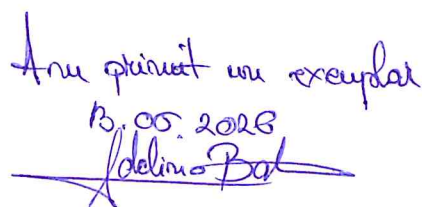 Am primit un exemplar
13.05.2026
Adelina Bat